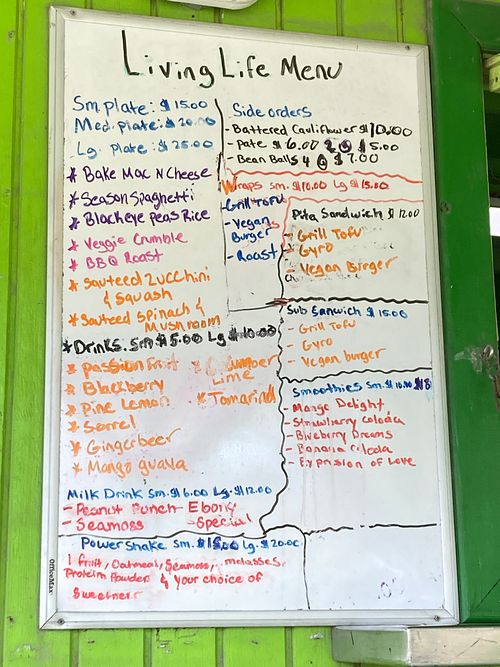 Living Life Menu
Sm plate: $15.00
Med. plate: $20.00
Lg. plate: $25.00
* Bake Mac N Cheese
* Season Spaghetti
* Blackeye Peas Rice
* Veggie Crumble
* BBQ Roast
* Sauteed Zucchini
& Squash
* Sauteed Spinach &
Mushroom
* Drinks: Sm $5.00 Lg $10.00
* Passion Fruit
* Blackberry
* Pine Lemon
* Sorrel
* Gingerbeer
* Mango guava
* Cucumber
Lime
* Tamarind
Milk Drink Sm. $6.00 Lg. $12.00
- Peanut Punch - Ebony
- Seamoss - Special
Power Shake Sm. $15.00 Lg. $20.00
1 fruit, Oatmeal, Seamoss, molasses,
Protein Powder & Your choice of
Sweetner
Side orders
- Battered Cauliflower $10.00
- Pate $6.00 $5.00
- Bean Balls 4 $7.00
Wraps Sm. $10.00 Lg $15.00
- Grill Tofu
- Vegan
Burger
- Roast
Pita Sandwich $12.00
- Grill Tofu
- Gyro
- Vegan Burger
Sub Sanwich $15.00
- Grill Tofu
- Gyro
- Vegan burger
Smoothies Sm. $10.00
- Mango Delight
- Strawberry Colada
- Blueberry Dreams
- Banana Colada
- Expresion of Love
OfficeMax